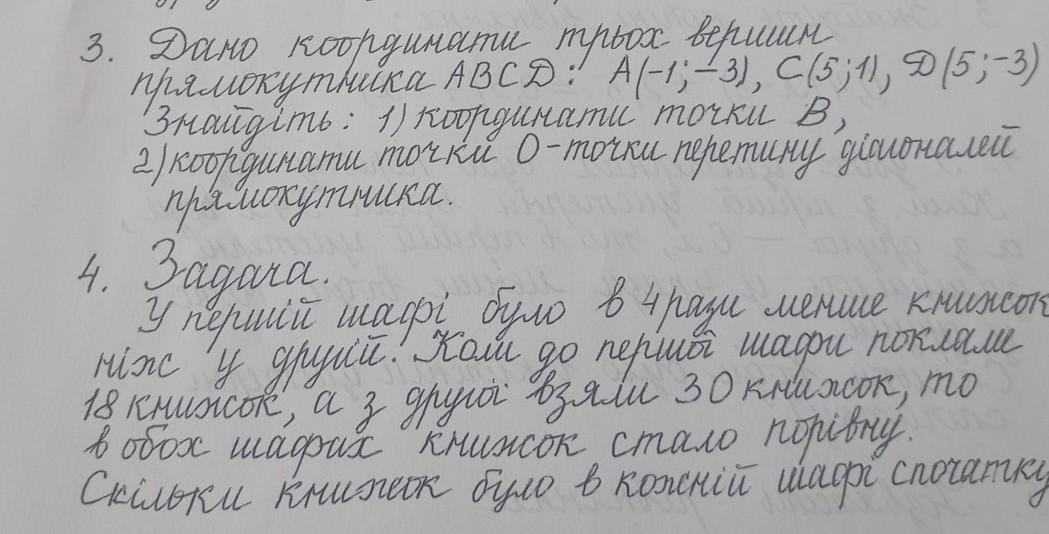 3. Дано координати трьох вершин
прямокутника ABCD: A(-1;-3), C(5;1), D(5;-3)
Знайдіть: 1) координати точки B,
2) координати точки O-точки перетину діагоналей
прямокутника.
4. Задача.
У першій шафі було в 4 рази менше книжок
ніж у другій. Коли до першої шафи поклали
18 книжок, а з другої взяли 30 книжок, то
в обох шафах книжок стало порівну.
Скільки книжок було в кожній шафі спочатку